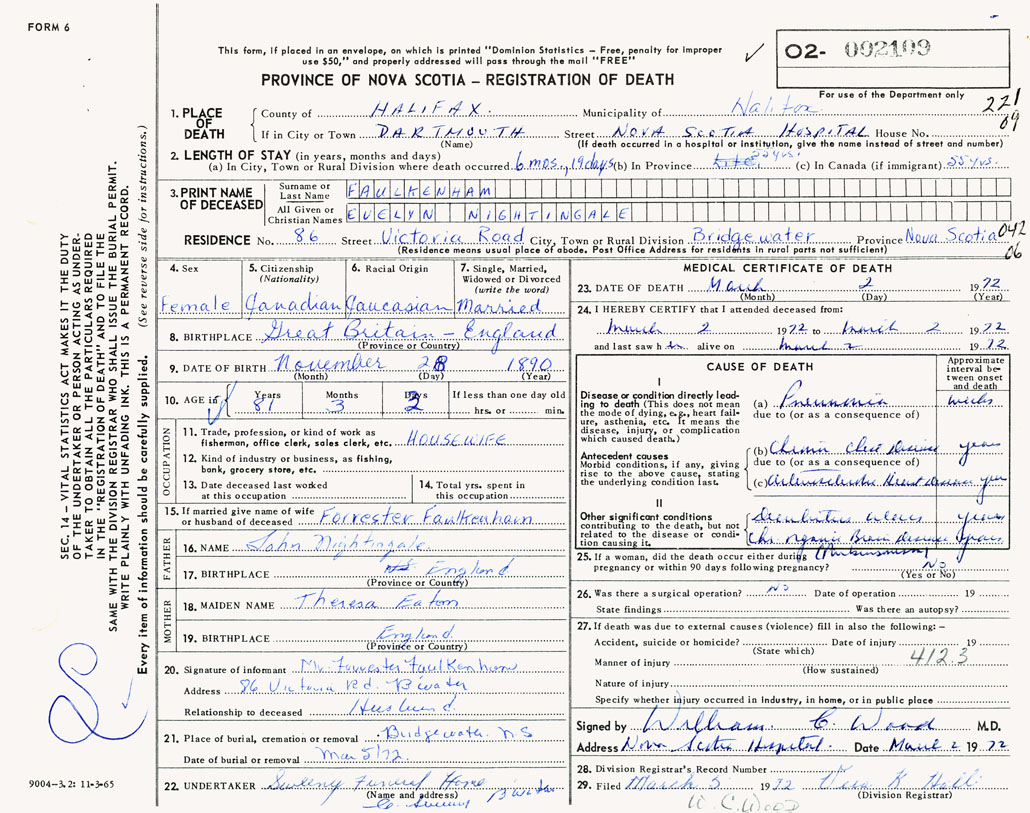 FORM 6
This form, if placed in an envelope, on which is printed "Dominion Statistics – Free, penalty for improper
use $50," and properly addressed will pass through the mail "FREE"
PROVINCE OF NOVA SCOTIA – REGISTRATION OF DEATH
02- 002109
For use of the Department only
221
09
SEC. 14 – VITAL STATISTICS ACT MAKES IT THE DUTY
OF THE UNDERTAKER OR PERSON ACTING AS UNDER-
TAKER TO OBTAIN ALL THE PARTICULARS REQUIRED
IN THE "REGISTRATION OF DEATH" AND TO FILE THE
SAME WITH THE DIVISION REGISTRAR WHO SHALL ISSUE THE BURIAL PERMIT.
WRITE PLAINLY WITH UNFADING INK. THIS IS A PERMANENT RECORD.
Every item of information should be carefully supplied. (See reverse side for instructions.)
1. PLACE OF DEATH
County of HALIFAX. Municipality of Halifax
If in City or Town DARTMOUTH Street NOVA SCOTIA HOSPITAL House No.
(Name) (If death occurred in a hospital or institution, give the name instead of street and number)
2. LENGTH OF STAY (in years, months and days)
(a) In City, Town or Rural Division where death occurred 6 mos., 19 days (b) In Province 55 yrs. (c) In Canada (if immigrant) 55 yrs.
3. PRINT NAME OF DECEASED
Surname or Last Name FAULKENHAM
All Given or Christian Names EVELYN NIGHTINGALE
RESIDENCE No. 86 Street Victoria Road City, Town or Rural Division Bridgewater Province Nova Scotia
042
06
(Residence means usual place of abode. Post Office Address for residents in rural parts not sufficient)
4. Sex
Female
5. Citizenship
(Nationality)
Canadian
6. Racial Origin
Caucasian
7. Single, Married,
Widowed or Divorced
(write the word)
Married
8. BIRTHPLACE Great Britain – England
(Province or Country)
9. DATE OF BIRTH November 28 1890
(Month) (Day) (Year)
10. AGE if Years Months Days If less than one day old
81 3 2 hrs. or min.
OCCUPATION
11. Trade, profession, or kind of work as
fisherman, office clerk, sales clerk, etc. HOUSEWIFE
12. Kind of industry or business, as fishing,
bank, grocery store, etc.
13. Date deceased last worked
at this occupation
14. Total yrs. spent in
this occupation
15. If married give name of wife
or husband of deceased Forrester Faulkenham
FATHER
16. NAME John Nightingale
17. BIRTHPLACE England
(Province or Country)
MOTHER
18. MAIDEN NAME Theresa Eaton
19. BIRTHPLACE England
(Province or Country)
20. Signature of informant Mr. Forrester Faulkenham
Address 86 Victoria Rd. B'water
Relationship to deceased Husband
21. Place of burial, cremation or removal Bridgewater NS
Date of burial or removal Mar 5/72
22. UNDERTAKER Sweeny Funeral Home
(Name and address) B'water
MEDICAL CERTIFICATE OF DEATH
23. DATE OF DEATH March 2 1972
(Month) (Day) (Year)
24. I HEREBY CERTIFY that I attended deceased from:
March 2 1972 to March 2 1972
and last saw her alive on March 2 1972
CAUSE OF DEATH
Approximate
interval be-
tween onset
and death
I
Disease or condition directly lead-
ing to death (This does not mean
the mode of dying, e.g., heart fail-
ure, asthenia, etc. It means the
disease, injury, or complication
which caused death.)
(a) Pneumonia weeks
due to (or as a consequence of)
Antecedent causes
Morbid conditions, if any, giving
rise to the above cause, stating
the underlying condition last.
(b) Chronic chest disease years
due to (or as a consequence of)
(c) Arteriosclerotic Heart disease years
II
Other significant conditions
contributing to the death, but not
related to the disease or condi-
tion causing it.
Decubitus ulcers years
Chr. organic Brain disease years
(Parkinsonism)
25. If a woman, did the death occur either during
pregnancy or within 90 days following pregnancy? No
(Yes or No)
26. Was there a surgical operation? No Date of operation 19
State findings Was there an autopsy?
27. If death was due to external causes (violence) fill in also the following: –
Accident, suicide or homicide? Date of injury 19
(State which)
412.3
Manner of injury
(How sustained)
Nature of injury
Specify whether injury occurred in Industry, in home, or in public place
Signed by William C. Wood M.D.
Address Nova Scotia Hospital. Date March 2 1972
28. Division Registrar's Record Number
29. Filed March 5 1972 Vera K Hall
(Division Registrar)
W. C. WOOD
9004–3.2: 11-3-65